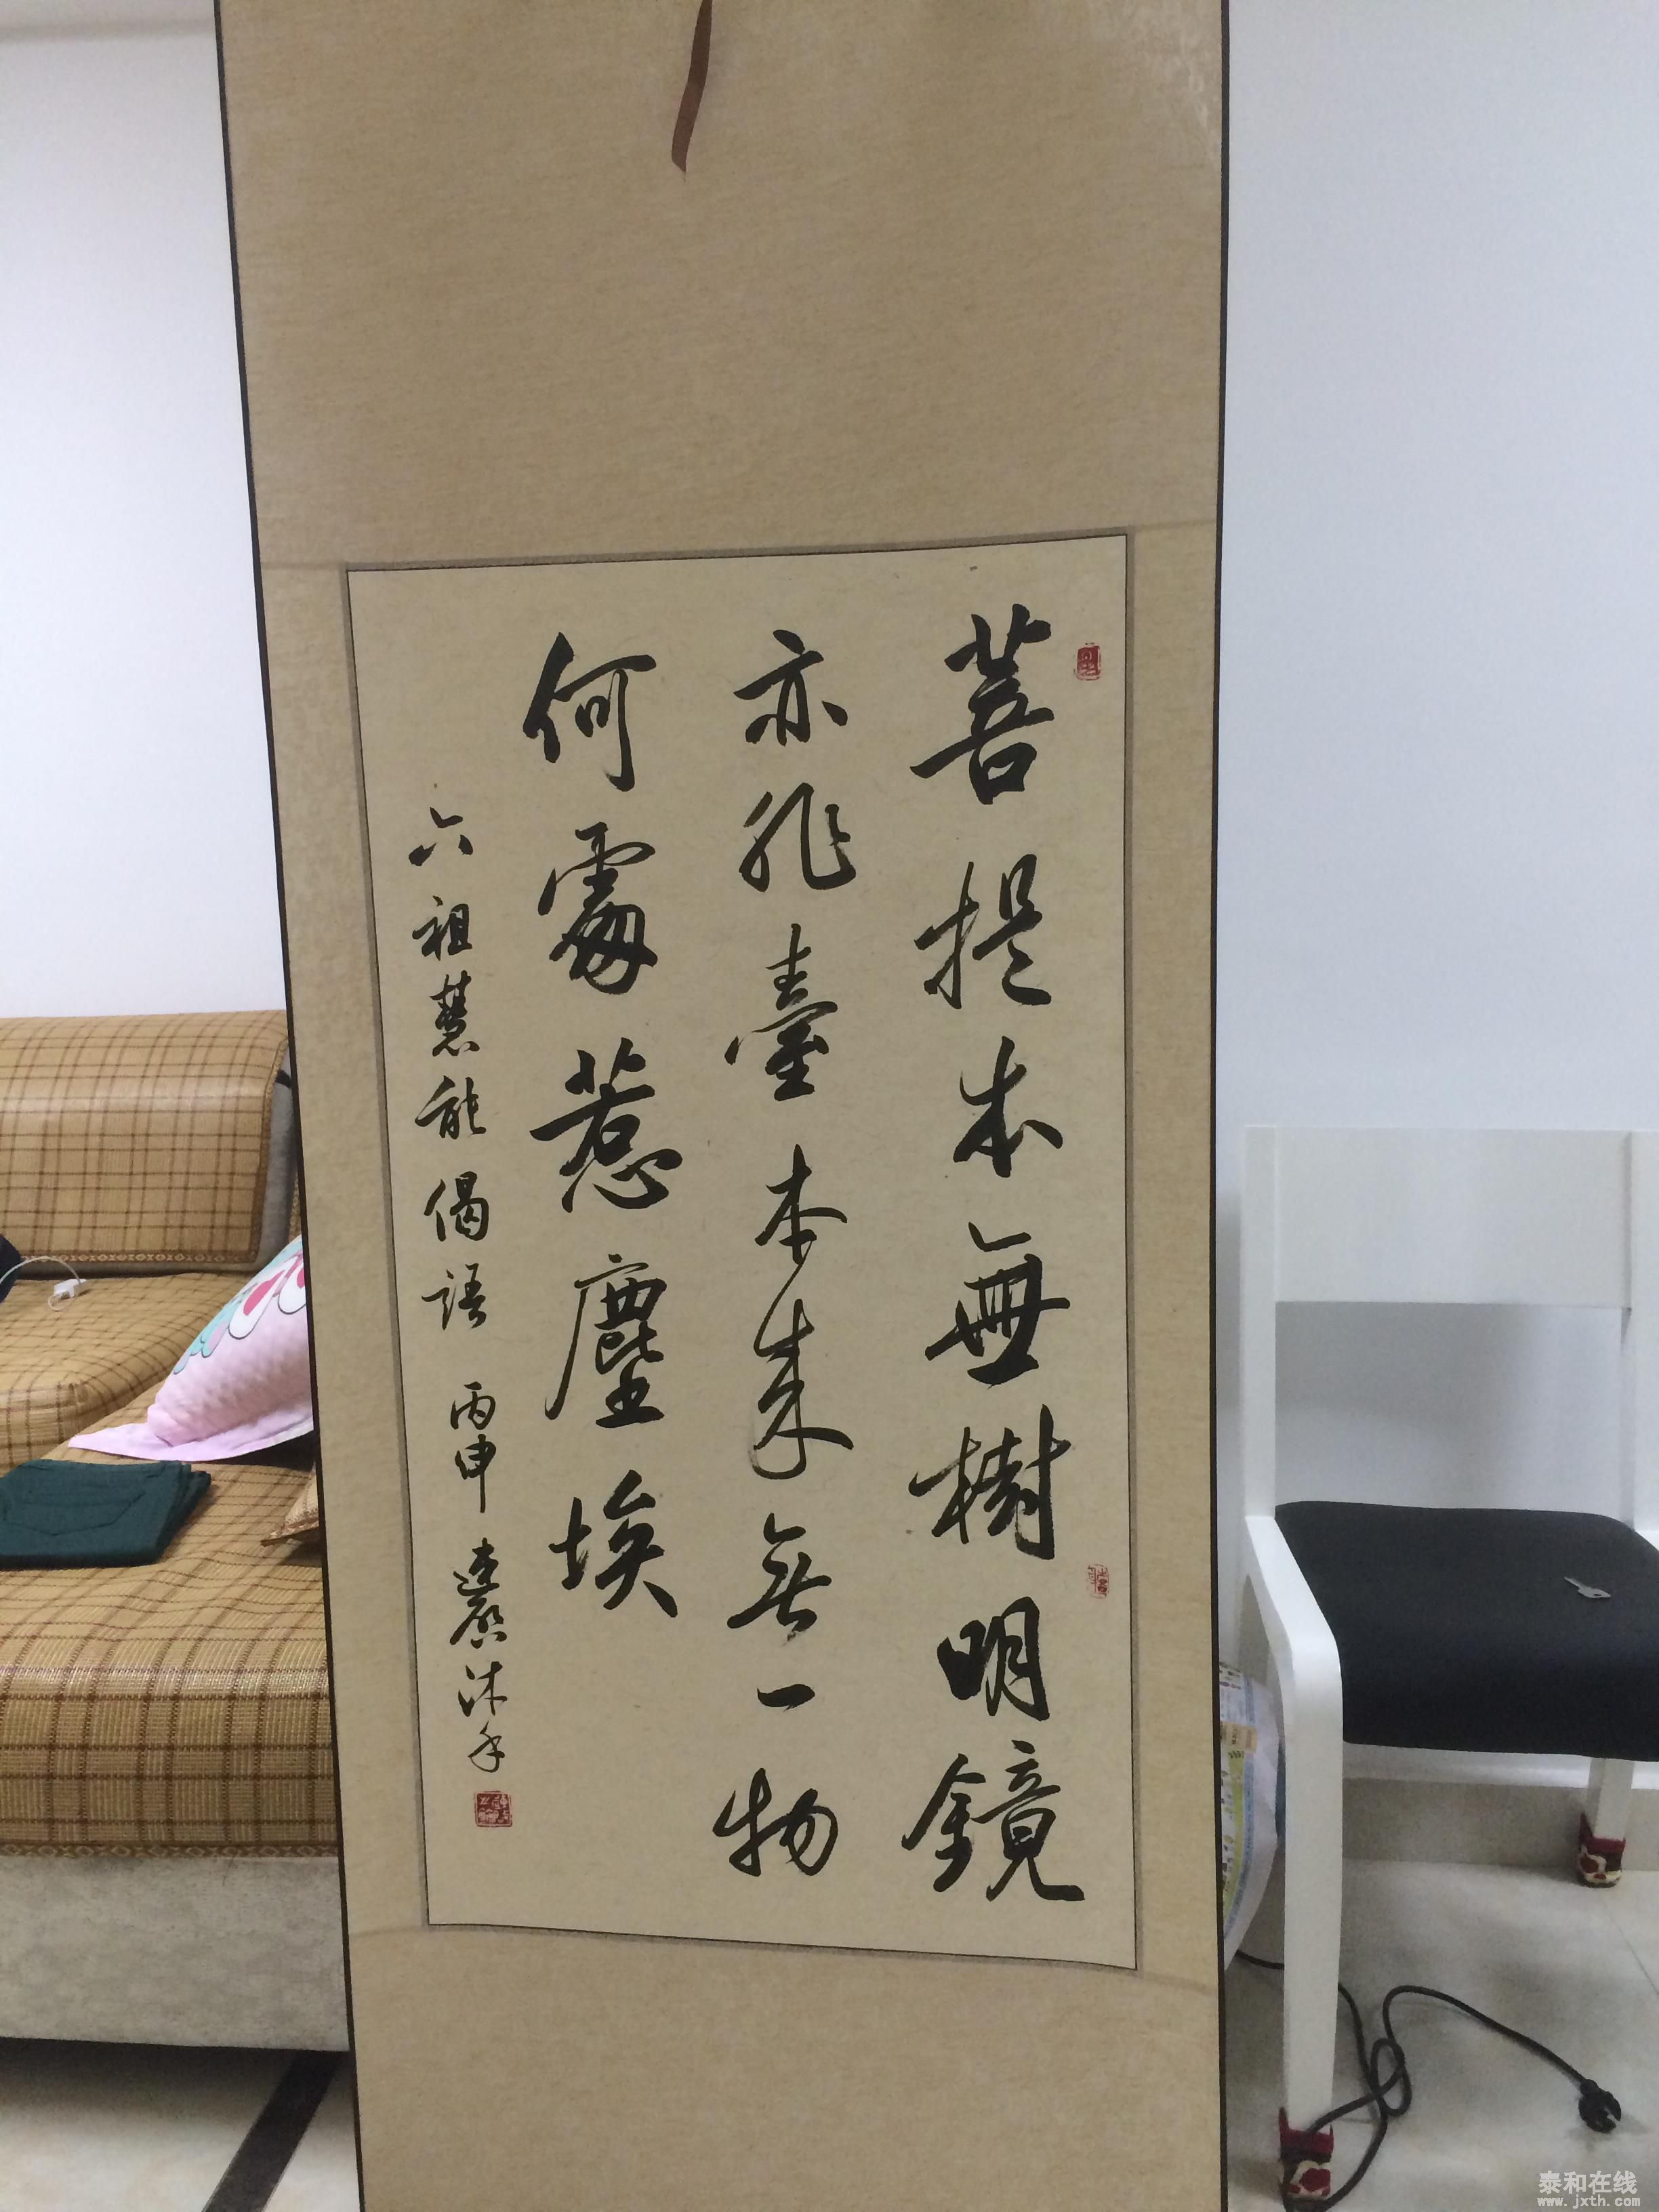 菩提本無樹明鏡
亦非臺本來無一物
何處惹塵埃
六祖慧能偈語 丙申 沐手
泰和在线
www.jxth.com